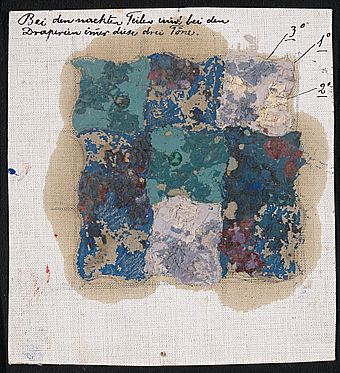 Bei den nackten Teilen und bei den
Draperien immer diese drei Töne.
3°
1°
2°